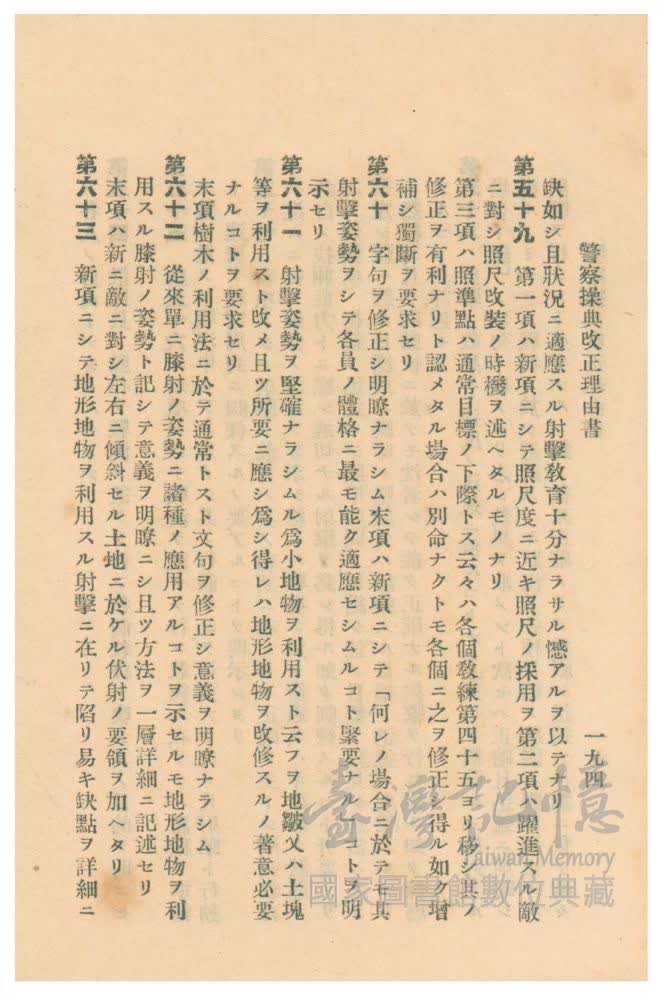 警察操典改正理由書
一九四
缺如シ且狀況ニ適應スル射擊敎育十分ナラサル憾アルヲ以テナリ
第五十九　第一項ハ新項ニシテ照尺度ニ近キ照尺ノ採用ヲ第二項ハ躍進スル敵
ニ對シ照尺改裝ノ時機ヲ述ヘタルモノナリ
第三項ハ照準點ハ通常目標ノ下際トス云々ハ各個敎練第四十五ヨリ移シ其ノ
修正ヲ有利ナリト認メタル場合ハ別命ナクトモ各個ニ之ヲ修正シ得ル如ク增
補シ獨斷ヲ要求セリ
第六十　字句ヲ修正シ明瞭ナラシム末項ハ新項ニシテ「何レノ場合ニ於テモ其
射擊姿勢ヲシテ各員ノ體格ニ最モ能ク適應セシムルコト緊要ナル」コトヲ明
示セリ
第六十一　射擊姿勢ヲ堅確ナラシムル爲小地物ヲ利用スト云フヲ地皺又ハ土塊
等ヲ利用スト改メ且ツ所要ニ應シ爲シ得レハ地形地物ヲ改修スルノ著意必要
ナルコトヲ要求セリ
末項樹木ノ利用法ニ於テ通常トスト文句ヲ修正シ意義ヲ明瞭ナラシム
第六十二　從來單ニ膝射ノ姿勢ニ諸種ノ應用アルコトヲ示セルモ地形地物ヲ利
用スル膝射ノ姿勢ト記シテ意義ヲ明瞭ニシ且ツ方法ヲ一層詳細ニ記述セリ
末項ハ新ニ敵ニ對シ左右ニ傾斜セル土地ニ於ケル伏射ノ要領ヲ加ヘタリ
第六十三　新項ニシテ地形地物ヲ利用スル射擊ニ在リテ陷リ易キ缺點ヲ詳細ニ
臺灣記憶
Taiwan Memory
國家圖書館數位典藏